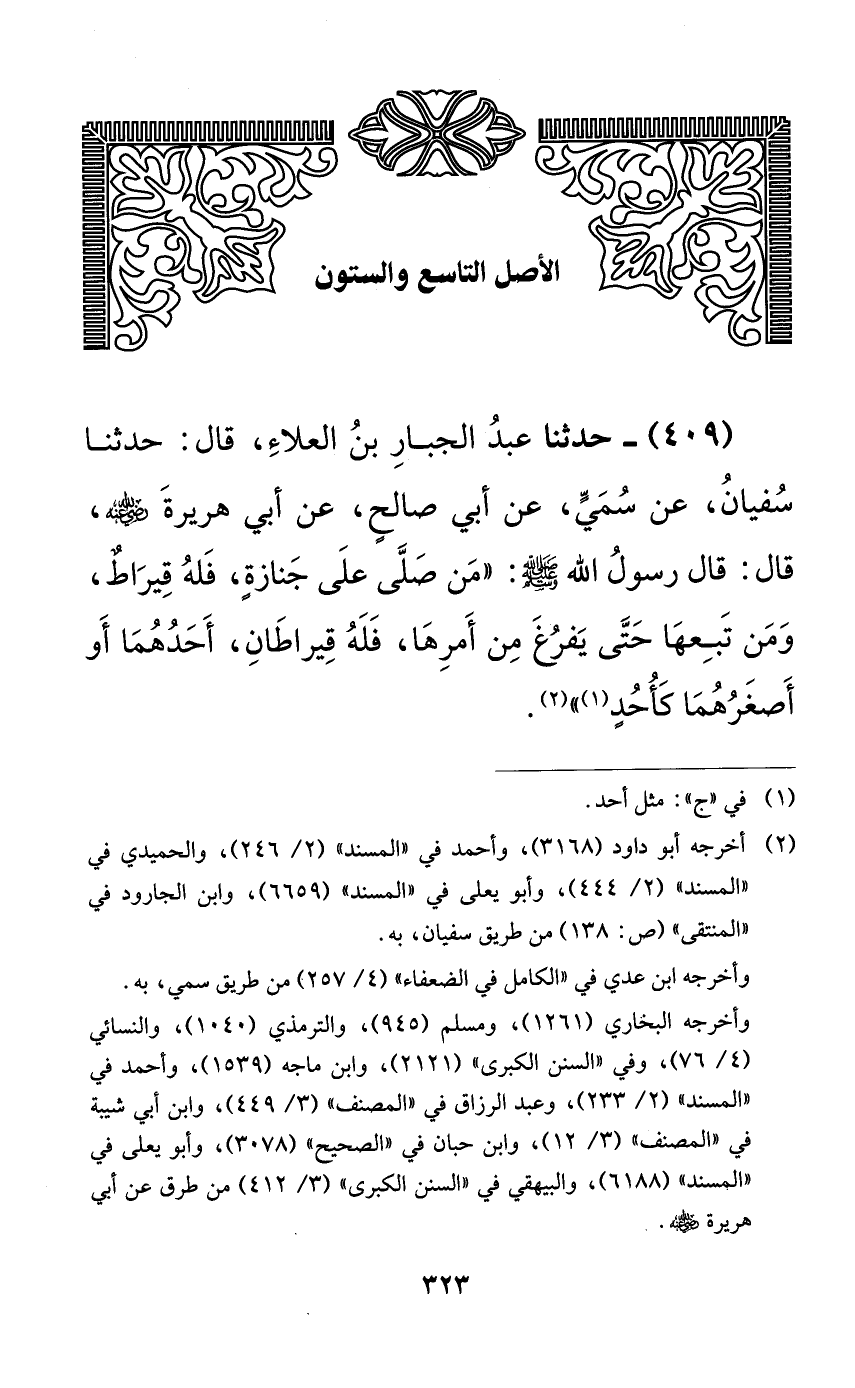 الأصل التاسع والستون
(٤٠٩) ـ حدثنا عبدُ الجبارِ بنُ العلاءِ، قال: حدثنا
سُفيانُ، عن سُمَيٍّ، عن أبي صالحٍ، عن أبي هريرةَ رضي الله عنه،
قال: قال رسولُ الله ﷺ: «مَن صَلَّى علَى جَنازةٍ، فَلهُ قِيرَاطٌ،
وَمَن تَبِعهَا حَتَّى يَفرُغَ مِن أَمرِهَا، فَلَهُ قِيراطَانِ، أَحَدُهُمَا أَو
أَصغَرُهُمَا كَأُحُدٍ(١)»(٢).
(١) في «ج»: مثل أحد.
(٢) أخرجه أبو داود (٣١٦٨)، وأحمد في «المسند» (٢/ ٢٤٦)، والحميدي في
«المسند» (٢/ ٤٤٤)، وأبو يعلى في «المسند» (٦٦٥٩)، وابن الجارود في
«المنتقى» (ص: ١٣٨) من طريق سفيان، به.
وأخرجه ابن عدي في «الكامل في الضعفاء» (٤/ ٢٥٧) من طريق سمي، به.
وأخرجه البخاري (١٢٦١)، ومسلم (٩٤٥)، والترمذي (١٠٤٠)، والنسائي
(٤/ ٧٦)، وفي «السنن الكبرى» (٢١٢١)، وابن ماجه (١٥٣٩)، وأحمد في
«المسند» (٢/ ٢٣٣)، وعبد الرزاق في «المصنف» (٣/ ٤٤٩)، وابن أبي شيبة
في «المصنف» (٣/ ١٢)، وابن حبان في «الصحيح» (٣٠٧٨)، وأبو يعلى في
«المسند» (٦١٨٨)، والبيهقي في «السنن الكبرى» (٣/ ٤١٢) من طرق عن أبي
هريرة رضي الله عنه.
٣٢٣